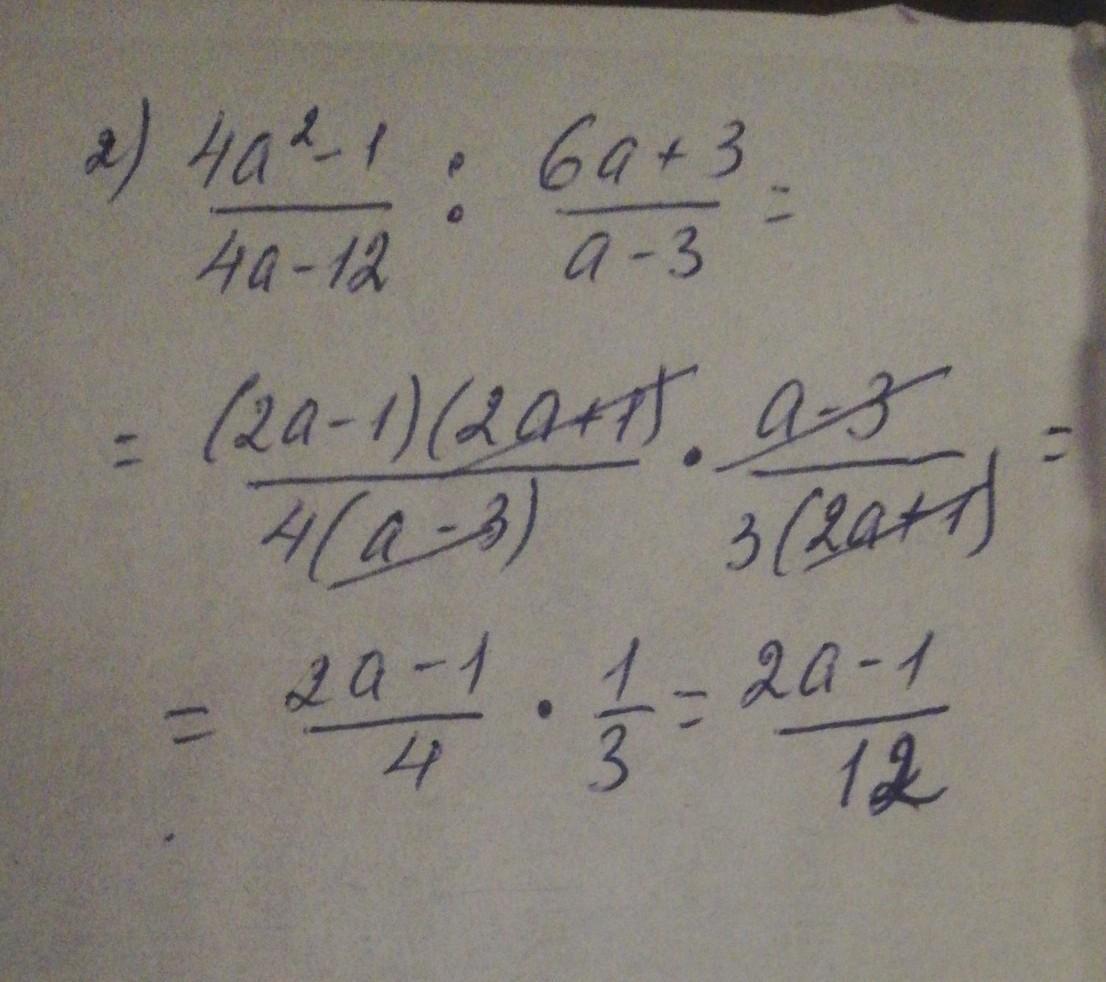 2) (4a²-1)/(4a-12) : (6a+3)/(a-3) =
= ((2a-1)(2a+1))/(4(a-3)) · (a-3)/(3(2a+1)) =
= (2a-1)/4 · 1/3 = (2a-1)/12